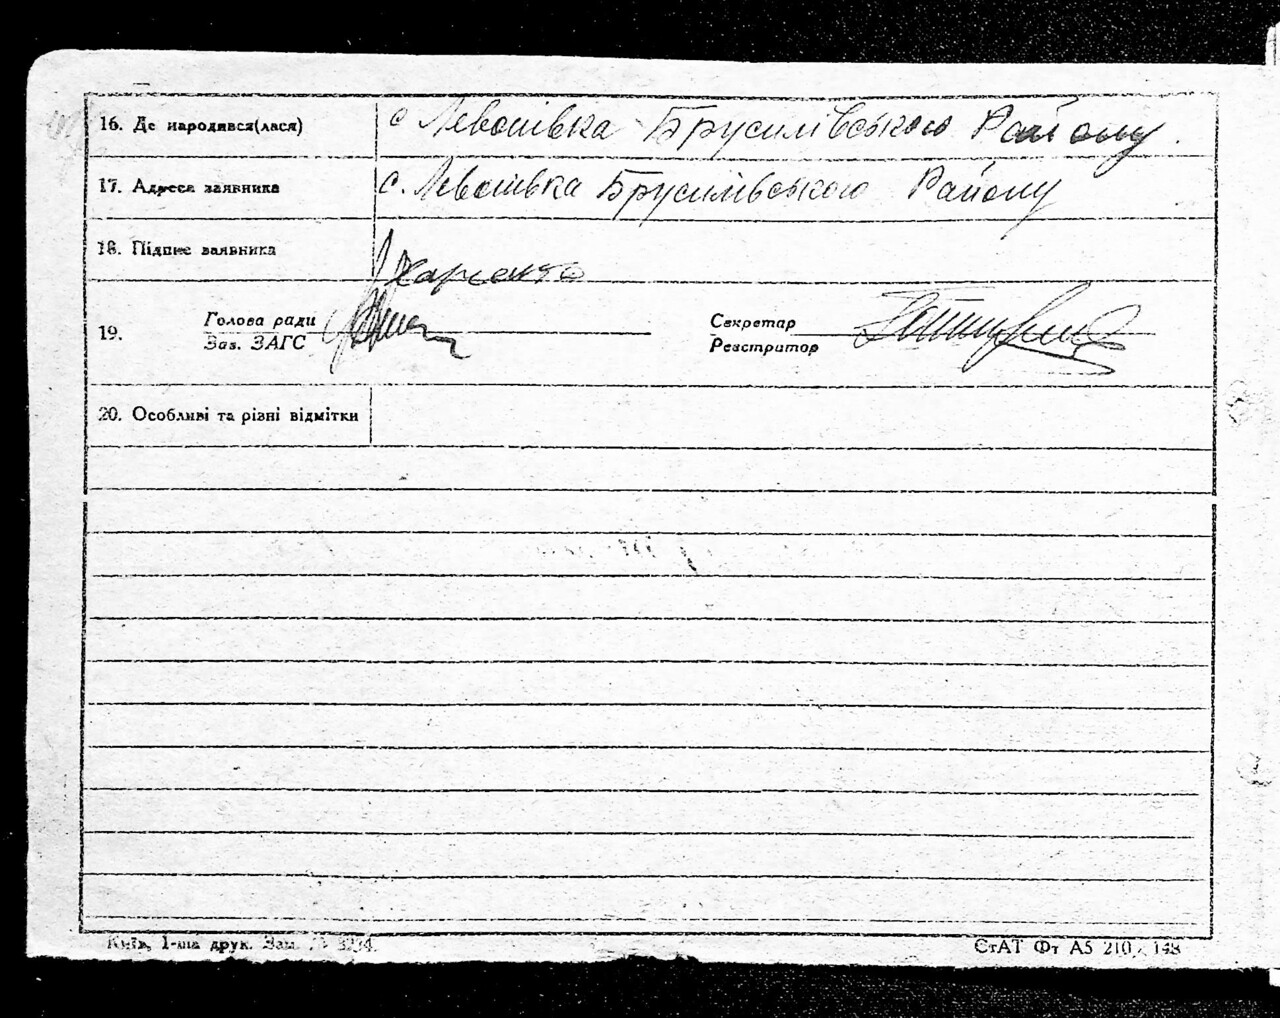 16. Де народився(лася) с Левошівка Брусилівського Району.
17. Адреса заявника с. Левошівка Брусилівського Району
18. Підпис заявника Харченко
19. Голова ради Секретар
Зав. ЗАГС Реєстратор
20. Особливі та різні відмітки
Київ, 1-ша друк. Зам. № 3234.
СтАТ Фт А5 210×148